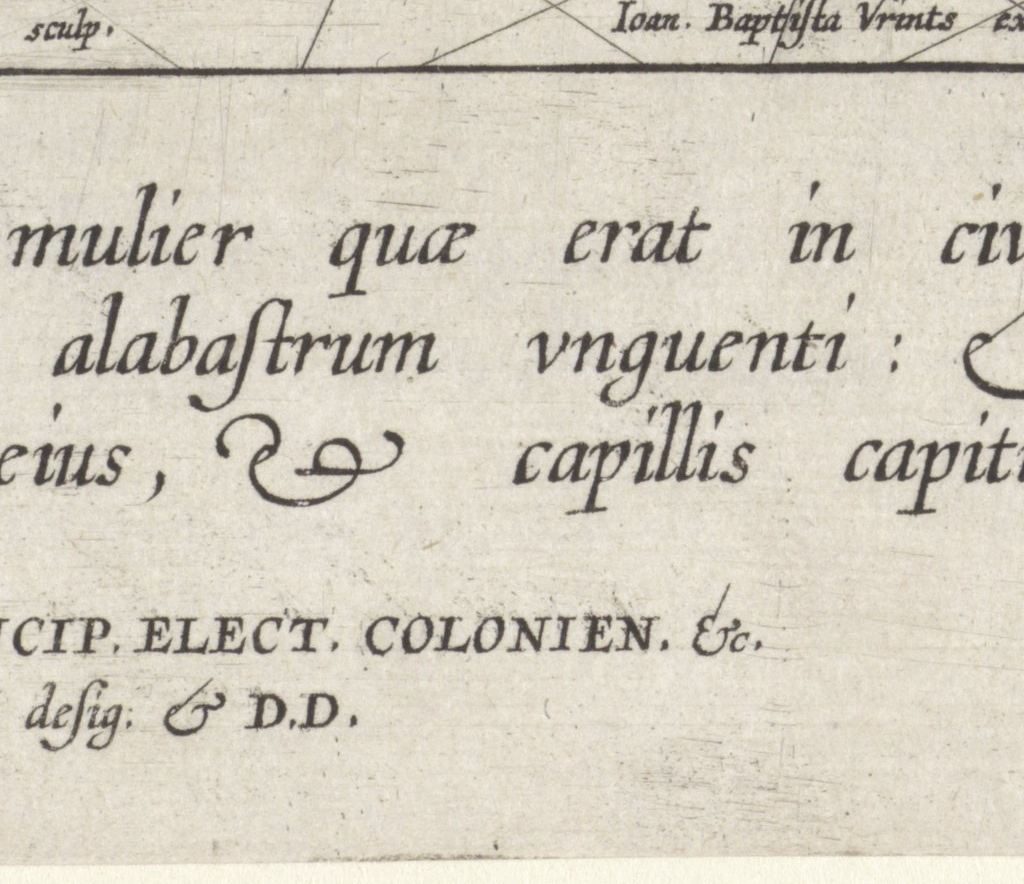 sculp. Ioan. Baptista Vrints ex
mulier quæ erat in civ
alabaſtrum vnguenti : &
eius, & capillis capiti
CIP. ELECT. COLONIEN. &c.
deſig. & D.D.